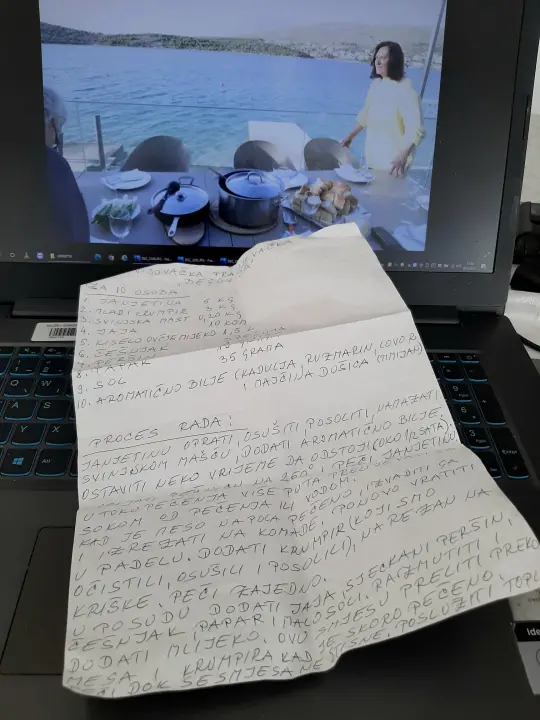 ZA 10 OSOBA:
1. JANJETINA 5 KG
2. MLADI KRUMPIR
3. SVINJSKA MAST 0,20 KG
4. JAJA 10 KOM
5. KISELO OVČJE MLIJEKO 1,5
6. ČEŠNJAK
8. PAPAR 35 GRAMA
9. SOL
10. AROMATIČNO BILJE (KADULJA, RUZMARIN, LOVOR
I MAJČINA DUŠICA (TIMIJAN)
PROCES RADA:
JANJETINU OPRATI, OSUŠITI, POSOLITI, NAMAZATI
SVINJSKOM MAŠĆU, DODATI AROMATIČNO BILJE,
OSTAVITI NEKO VRIJEME DA ODSTOJI (OKO 1 SATA).
NA 200° I PEĆI JANJETINU,
U TOKU PEČENJA VIŠE PUTA
SOKOM OD PEČENJA ILI VODOM.
KAD JE MESO NAPOLA PEČENO, IZVADITI GA
I IZREZATI NA KOMADE, PONOVO VRATITI
U PADELU. DODATI KRUMPIR (KOJI SMO
OČISTILI, OSUŠILI I POSOLILI), NAREZAN NA
KRIŠKE. PEĆI ZAJEDNO.
U POSUDU DODATI JAJA, SJECKANI PERŠIN,
ČEŠNJAK, PAPAR I MALO SOLI. RAZMUTITI I
DODATI MLIJEKO. OVU SMJESU PRELITI PREKO
MESA I KRUMPIRA KAD JE SKORO PEČENO.
PEĆI DOK SE SMJESA NE STISNE. POSLUŽITI TOPLO
Alt
Enter
Ide